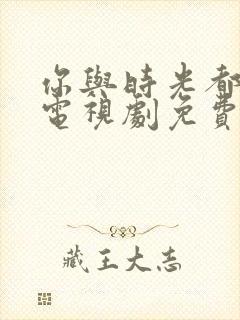 你與時光都
電視劇免費
藏王大志